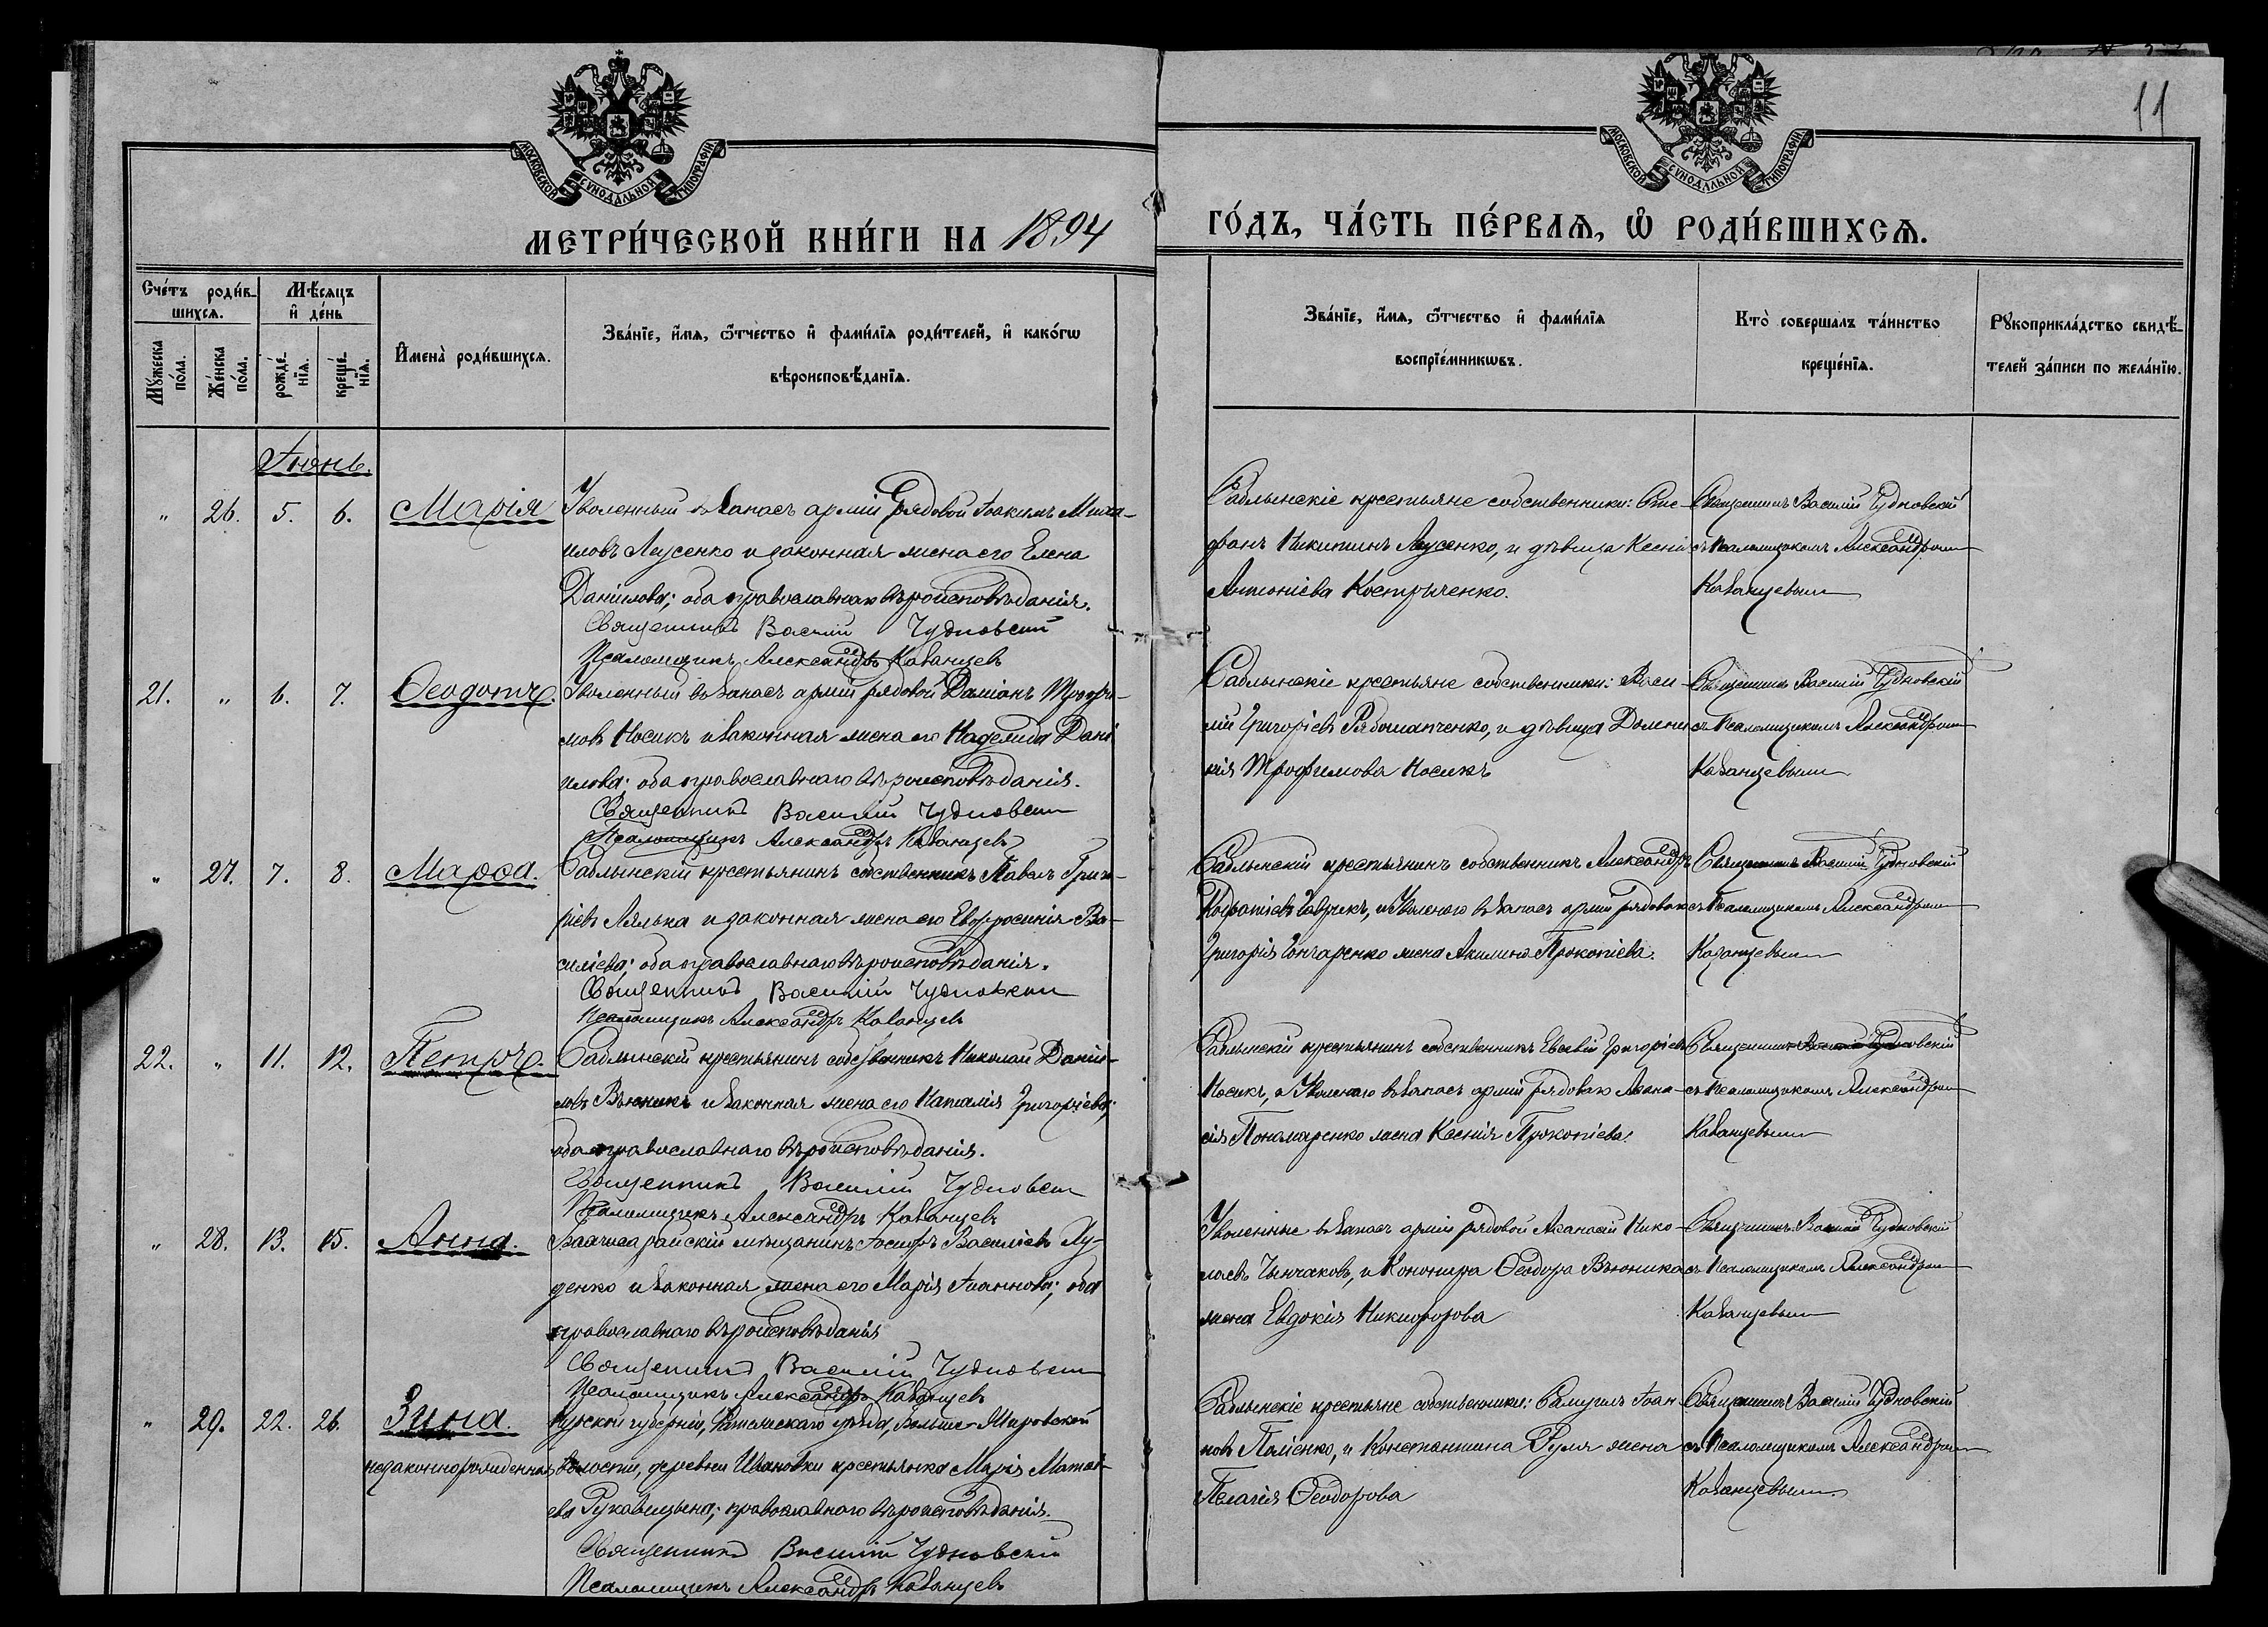 11
МОСКОВСКОЙ СУНОДАЛЬНОЙ ТИПОГРАФІИ
МОСКОВСКОЙ СУНОДАЛЬНОЙ ТИПОГРАФІИ
МЕТРИ́ЧЕСКОЙ КНИ́ГИ НА 1894
ГО́ДЪ, ЧА́СТЬ ПЕ́РВАѦ, Ѡ РОДИ́ВШИХСѦ.
Сче́тъ роди́в-
шихсѧ.
Мѣ́сѧцъ
и҆ де́нь
Мꙋ́жеска
по́ла.
Же́нска
по́ла.
рожде́-
нїѧ.
креще́-
нїѧ.
И҆мена̀ роди́вшихсѧ.
Зва́нїе, и҆́мѧ, ѻ҆́тчество и҆ фами́лїѧ роди́телей, и҆ како́гѡ
вѣроисповѣ́данїѧ.
Зва́нїе, и҆́мѧ, ѻ҆́тчество и҆ фами́лїѧ
воспрїе́мникѡвъ.
Кто̀ соверша́лъ та́инство
креще́нїѧ.
Рꙋкоприкла́дство свидѣ́-
телей за́писи по жела́нїю.
Іюнь.
„ 26. 5. 6. Марія
Уволенный въ запасъ арміи рядовой Іоакимъ Михаи-
ловъ Лусенко и законная жена его Елена
Даніилова; оба православнаго вѣроисповѣданія.
Священникъ Василій Чудновскій
Псаломщикъ Александръ Казанцевъ
Саблынскіе крестьяне собственники: Сте-
фанъ Никитинъ Лусенко, и дѣвица Ксенія
Антоніева Костриченко.
Священникъ Василій Чудновскій
съ Псаломщикомъ Александромъ
Казанцевымъ
21. „ 6. 7. Ѳеодотъ.
Уволенный въ запасъ арміи рядовой Даміанъ Трофи-
мовъ Носикъ и законная жена его Надежда Дані
илова; оба православнаго вѣроисповѣданія.
Священникъ Василій Чудновскій
Псаломщикъ Александръ Казанцевъ
Саблынскіе крестьяне собственники: Васи-
лій Григорьевъ Рябошапченко, и дѣвица Домни
кія Трофимова Носикъ
Священникъ Василій Чудновскій
съ Псаломщикомъ Александромъ
Казанцевымъ
„ 27. 7. 8. Марѳа.
Саблынскій крестьянинъ собственникъ Павелъ Григо-
ріевъ Лялька и законная жена его Евфросинія Ва-
силіева; оба православнаго вѣроисповѣданія.
Священникъ Василій Чудновскій
Псаломщикъ Александръ Казанцевъ
Саблынскій крестьянинъ собственникъ Александръ
Гаврикъ, и Уволеннаго въ запасъ арміи рядоваго
Григорія Гончаренко жена Акилина Прокопіева.
Священникъ Василій Чудновскій
съ Псаломщикомъ Александромъ
Казанцевымъ
22. „ 11. 12. Петръ.
Саблынскій крестьянинъ собственникъ Николай Даніи-
ловъ Вьюникъ и законная жена его Наталія Григоріева;
оба православнаго вѣроисповѣданія.
Священникъ Василій Чудновскій
Псаломщикъ Александръ Казанцевъ
Саблынскій крестьянинъ собственникъ Евсевій Григоріевъ
Носикъ, и Уволеннаго въ запасъ арміи рядоваго Аѳана-
сія Пономаренко жена Ксенія Прокопіева.
Священникъ Василій Чудновскій
съ Псаломщикомъ Александромъ
Казанцевымъ
„ 28. 13. 15. Анна.
Бахчисарайскій мѣщанинъ Іосифъ Василіевъ Лу-
ценко и законная жена его Марія Іоаннова; оба
православнаго вѣроисповѣданія
Священникъ Василій Чудновскій
Псаломщикъ Александръ Казанцевъ
Уволенные въ запасъ арміи рядовой Аѳанасій Нико-
лаевъ и Канонира Ѳеодора Вьюника
жена Евдокія Никифорова
Священникъ Василій Чудновскій
съ Псаломщикомъ Александромъ
Казанцевымъ
„ 29. 22. 26. Зина.
незаконнорожденная
Курской губерніи, уѣзда, Больше-
волости, деревни Ивановки крестьянка Марія Матвѣ-
ева Рукавицына; православнаго вѣроисповѣданія.
Священникъ Василій Чудновскій
Псаломщикъ Александръ Казанцевъ
Саблынскіе крестьяне собственники: Самуилъ Іоан-
новъ Паліенко, и Константина жена
Пелагія Ѳеодорова
Священникъ Василій Чудновскій
съ Псаломщикомъ Александромъ
Казанцевымъ